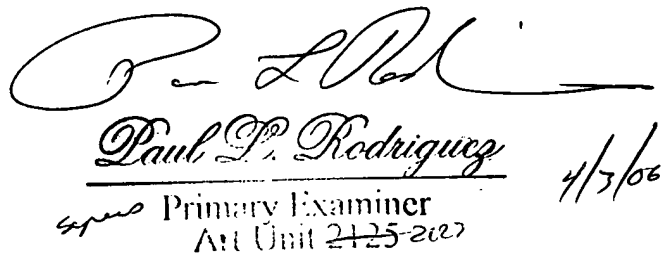 Paul L. Rodriguez
4/3/06
Primary Examiner
Art Unit 2125